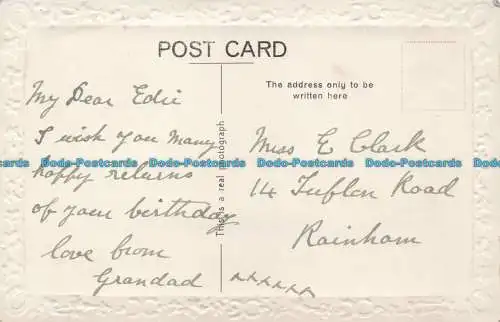 POST CARD
The address only to be
written here
My Dear Edie
I wish you many
happy returns
of your birthday
love from
Grandad xxxxxx
This is a real photograph
Miss E Clark
14 Tufton Road
Rainham
Dodo-Postcards Dodo-Postcards Dodo-Postcards Dodo-Postcards Dodo-Postcards Dodo-Postcards